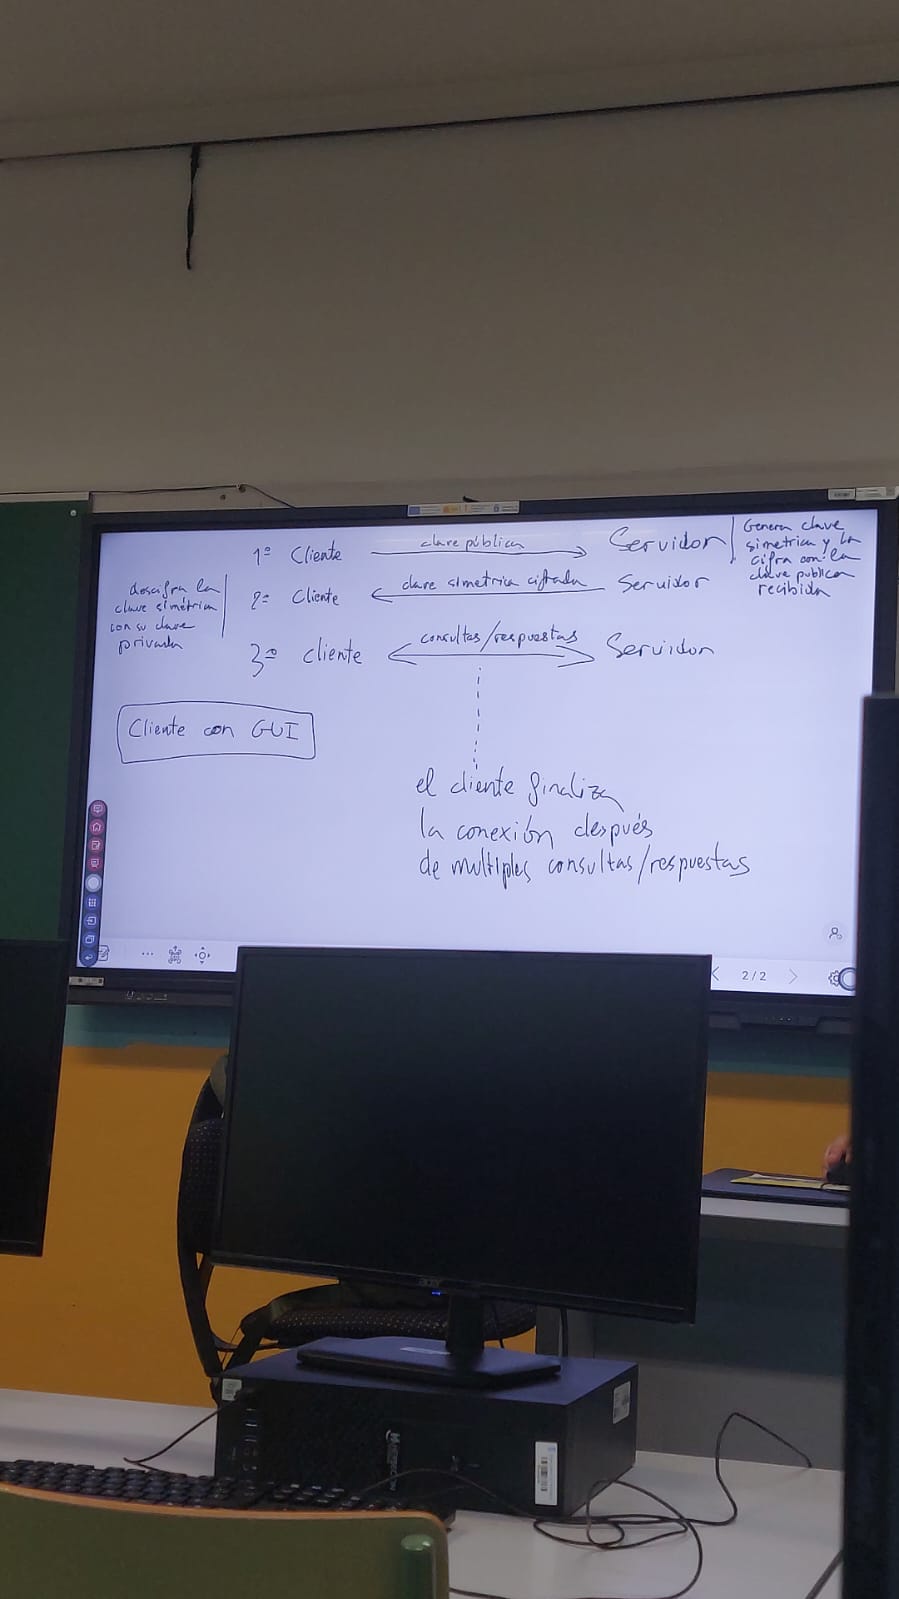 1º Cliente clave pública Servidor
Genera clave
simetrica y la
cifra con la
clave publica
recibida
2º Cliente clave simetrica cifrada Servidor
descifra la
clave simétrica
con su clave
privada
3º cliente consultas/respuestas Servidor
Cliente con GUI
el cliente finaliza
la conexión después
de multiples consultas/respuestas
2/2
acer